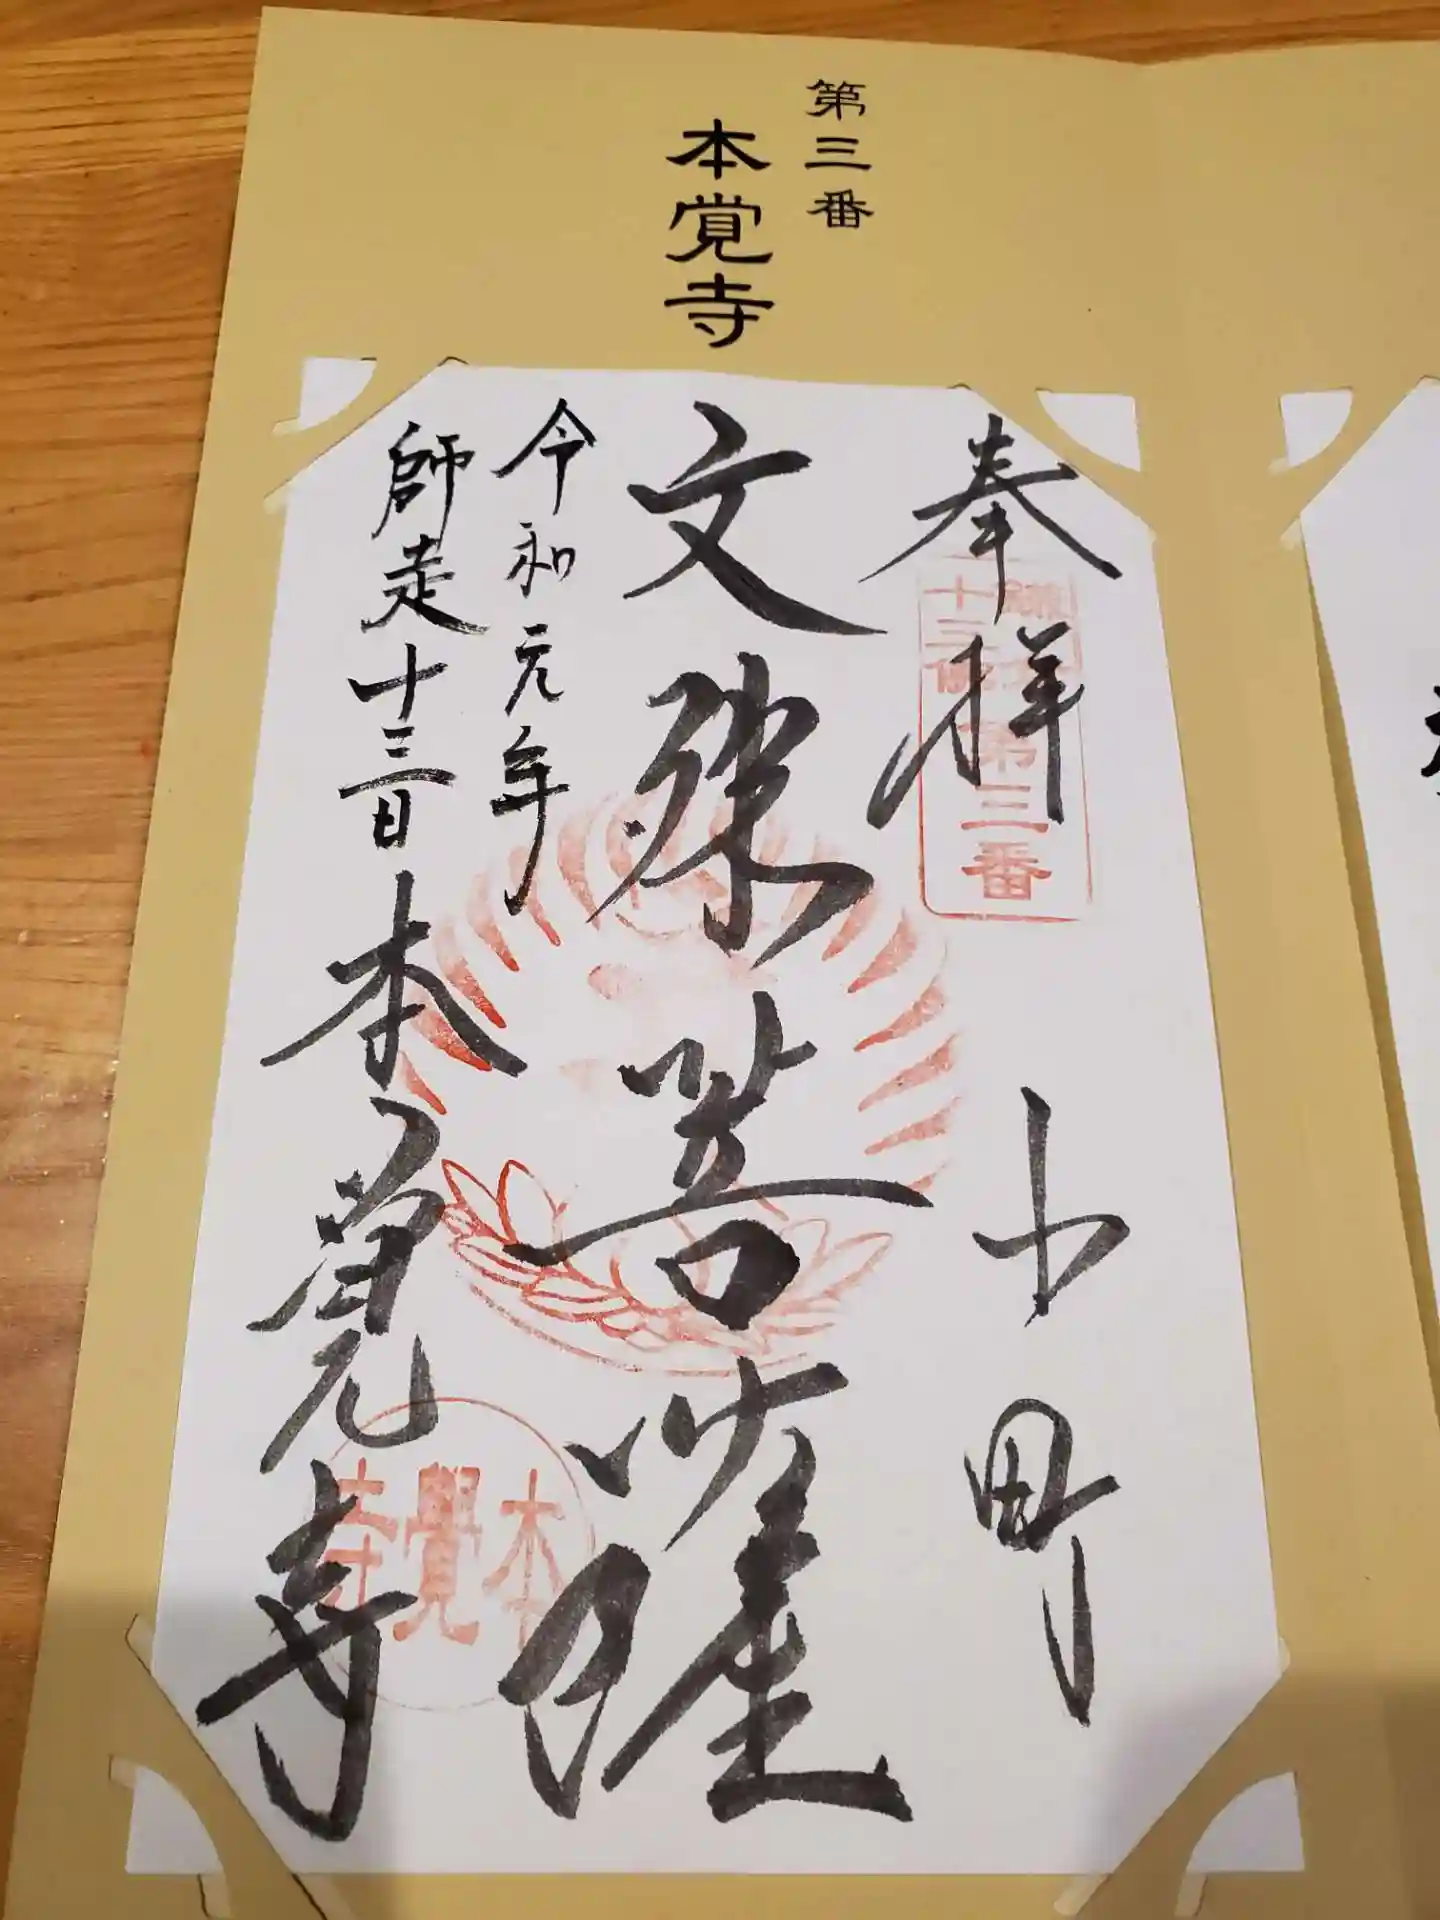 第三番
本覚寺
奉拝
小町
文殊菩薩
令和元年
師走十三日
本覚寺
鎌倉
十三仏
第三番
本覺寺